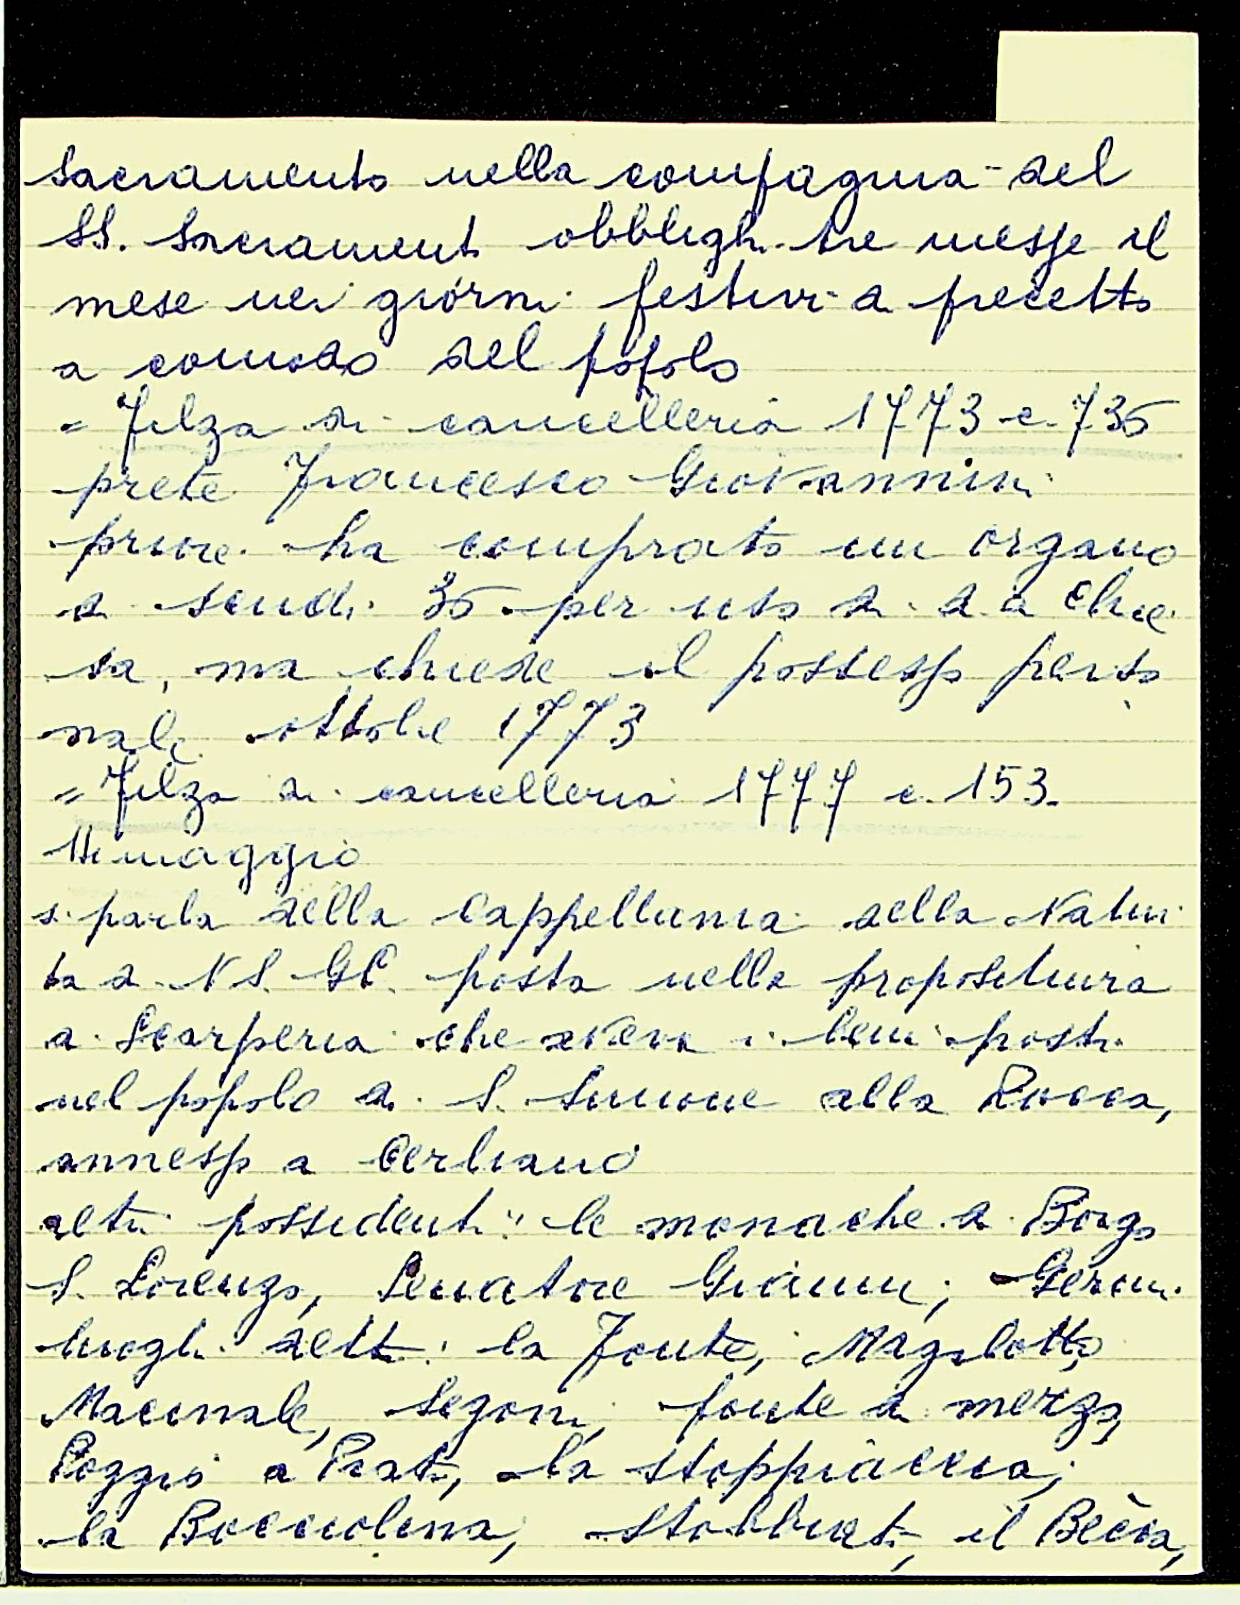 Sacramento nella compagnia del
SS. Sacramento obblighi tre messe il
mese nei giorni festivi di precetto
a comodo del popolo
= Filza di cancelleria 1773 c. 735
prete Francesco Giovannini
priore ha comprato un organo
di scudi 35 per uso di d.a Chie
sa, ma chiede il possesso perso
nale ottobre 1773
= Filza di cancelleria 1777 c. 153.
maggio
si parla della Cappellania della Nativi
ta di N.S. GC. posta nella propositura
di Scarperia che aveva i beni posti
nel popolo di S. Simone alla Rocca,
annesso a Cerliano
altri possidenti: le monache di Borgo
S. Lorenzo, Senatore Gianni;
luoghi detti: la Fonte,
Macinale, Segoni, fonte di mezzo,
Poggio a Prati, la stoppiaccia;
la Bocciolina, il Bècca,